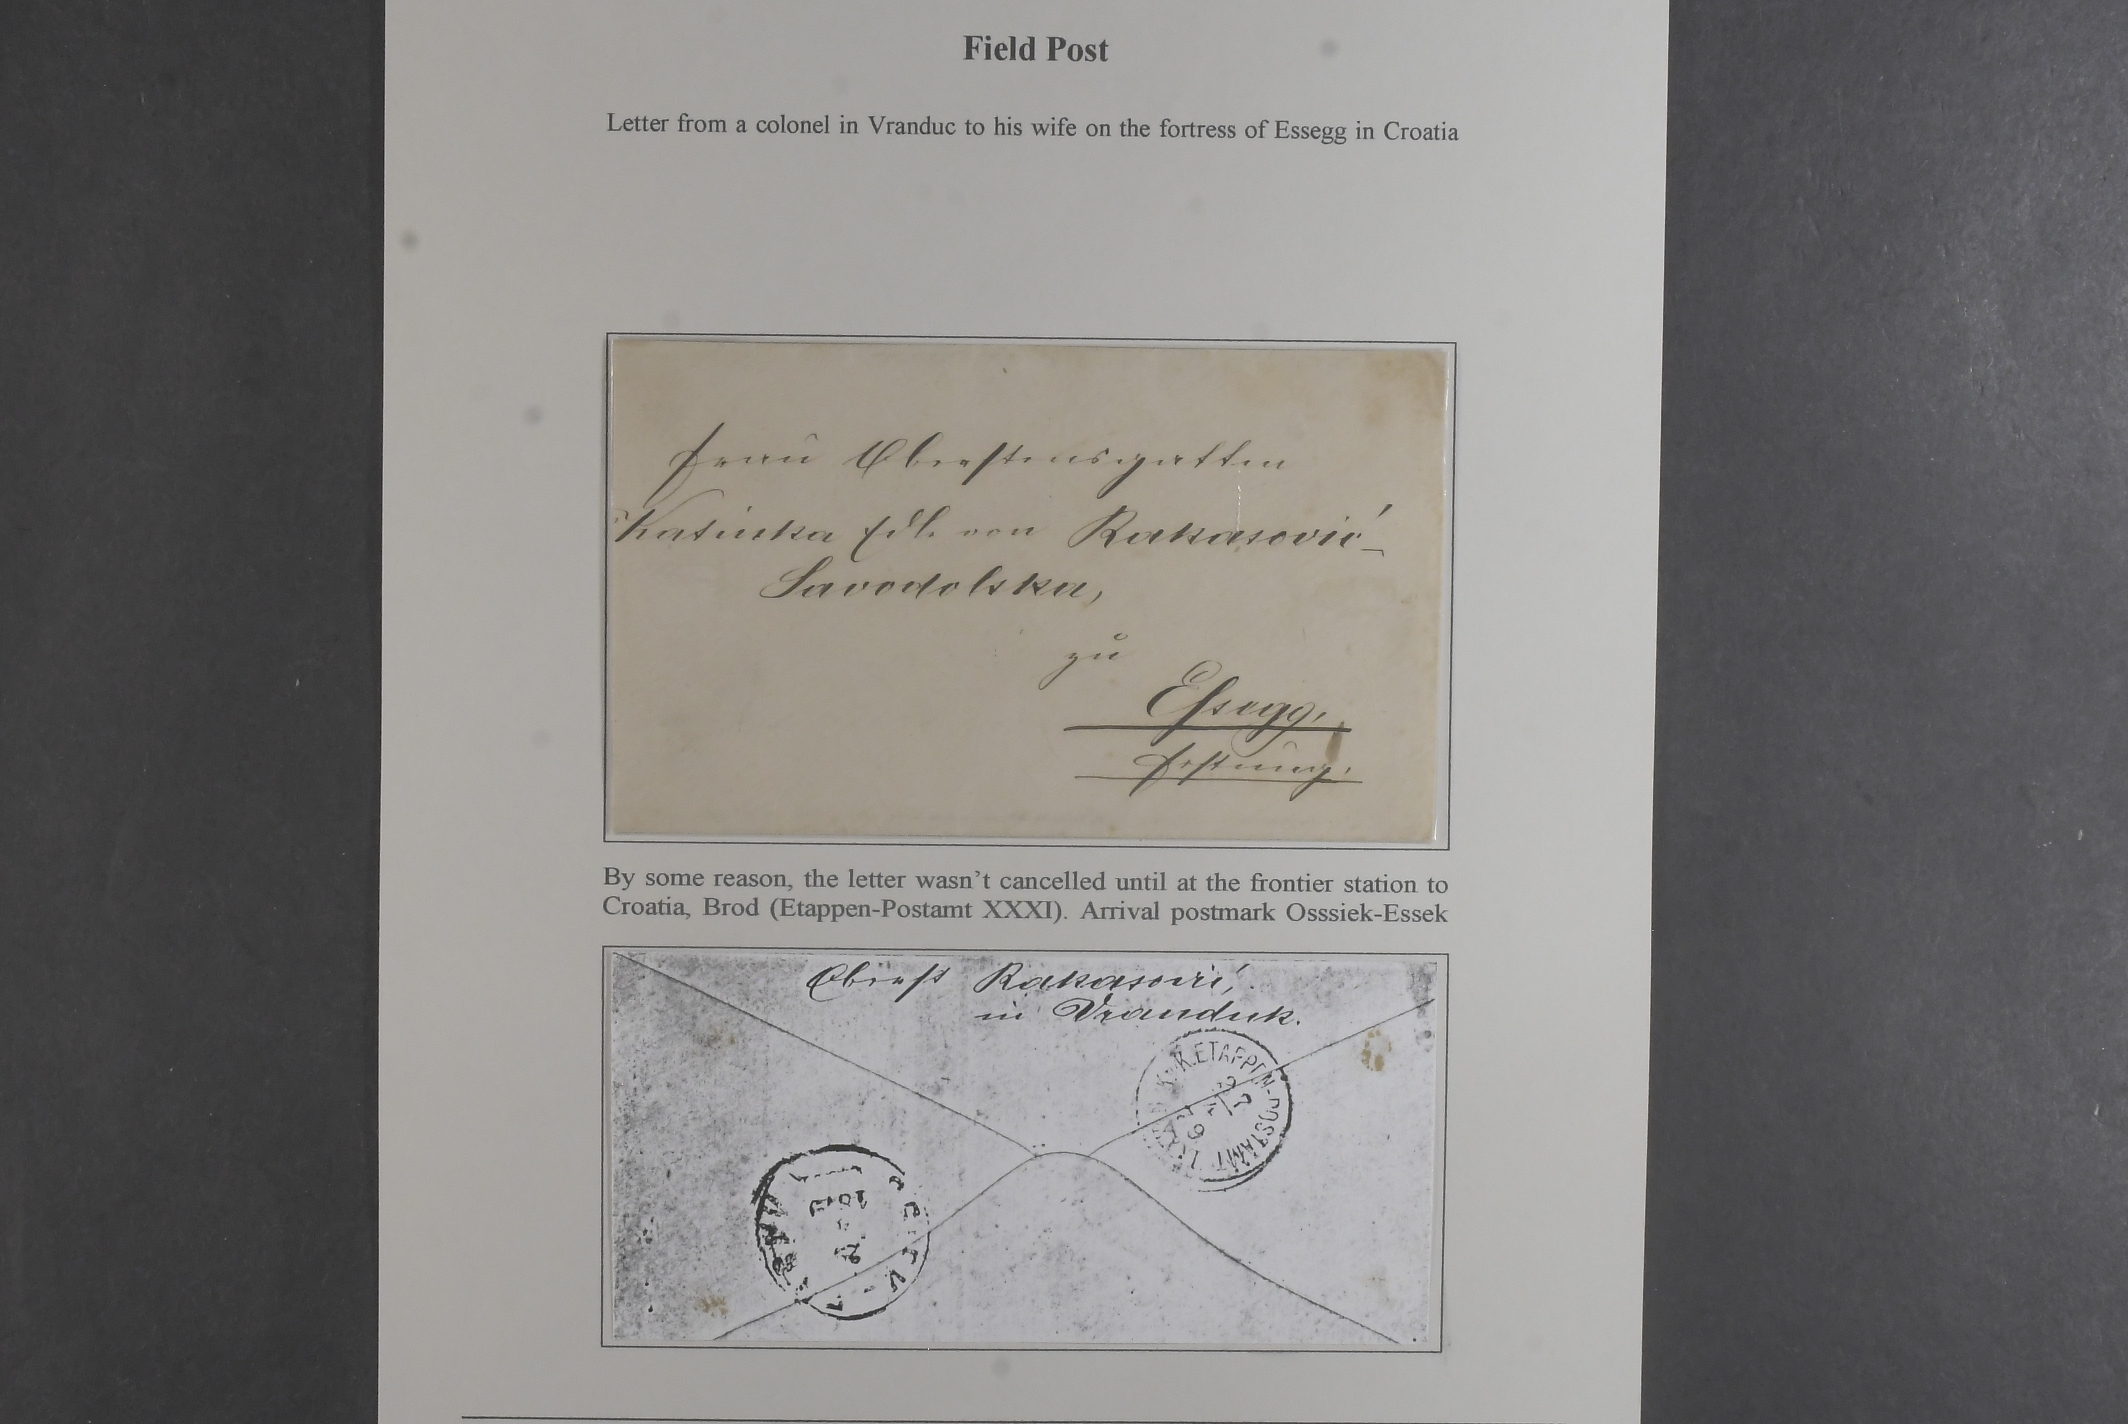 Field Post
Letter from a colonel in Vranduc to his wife on the fortress of Essegg in Croatia
Frau Oberstensgattin
Katinka Edle von Rakasović-
Savodolska,
zu
Essegg,
Festung.
By some reason, the letter wasn't cancelled until at the frontier station to
Croatia, Brod (Etappen-Postamt XXXI). Arrival postmark Osssiek-Essek
Oberst Rakasović,
in Vranduk.
K.K.ETAPPEN-POSTAMT